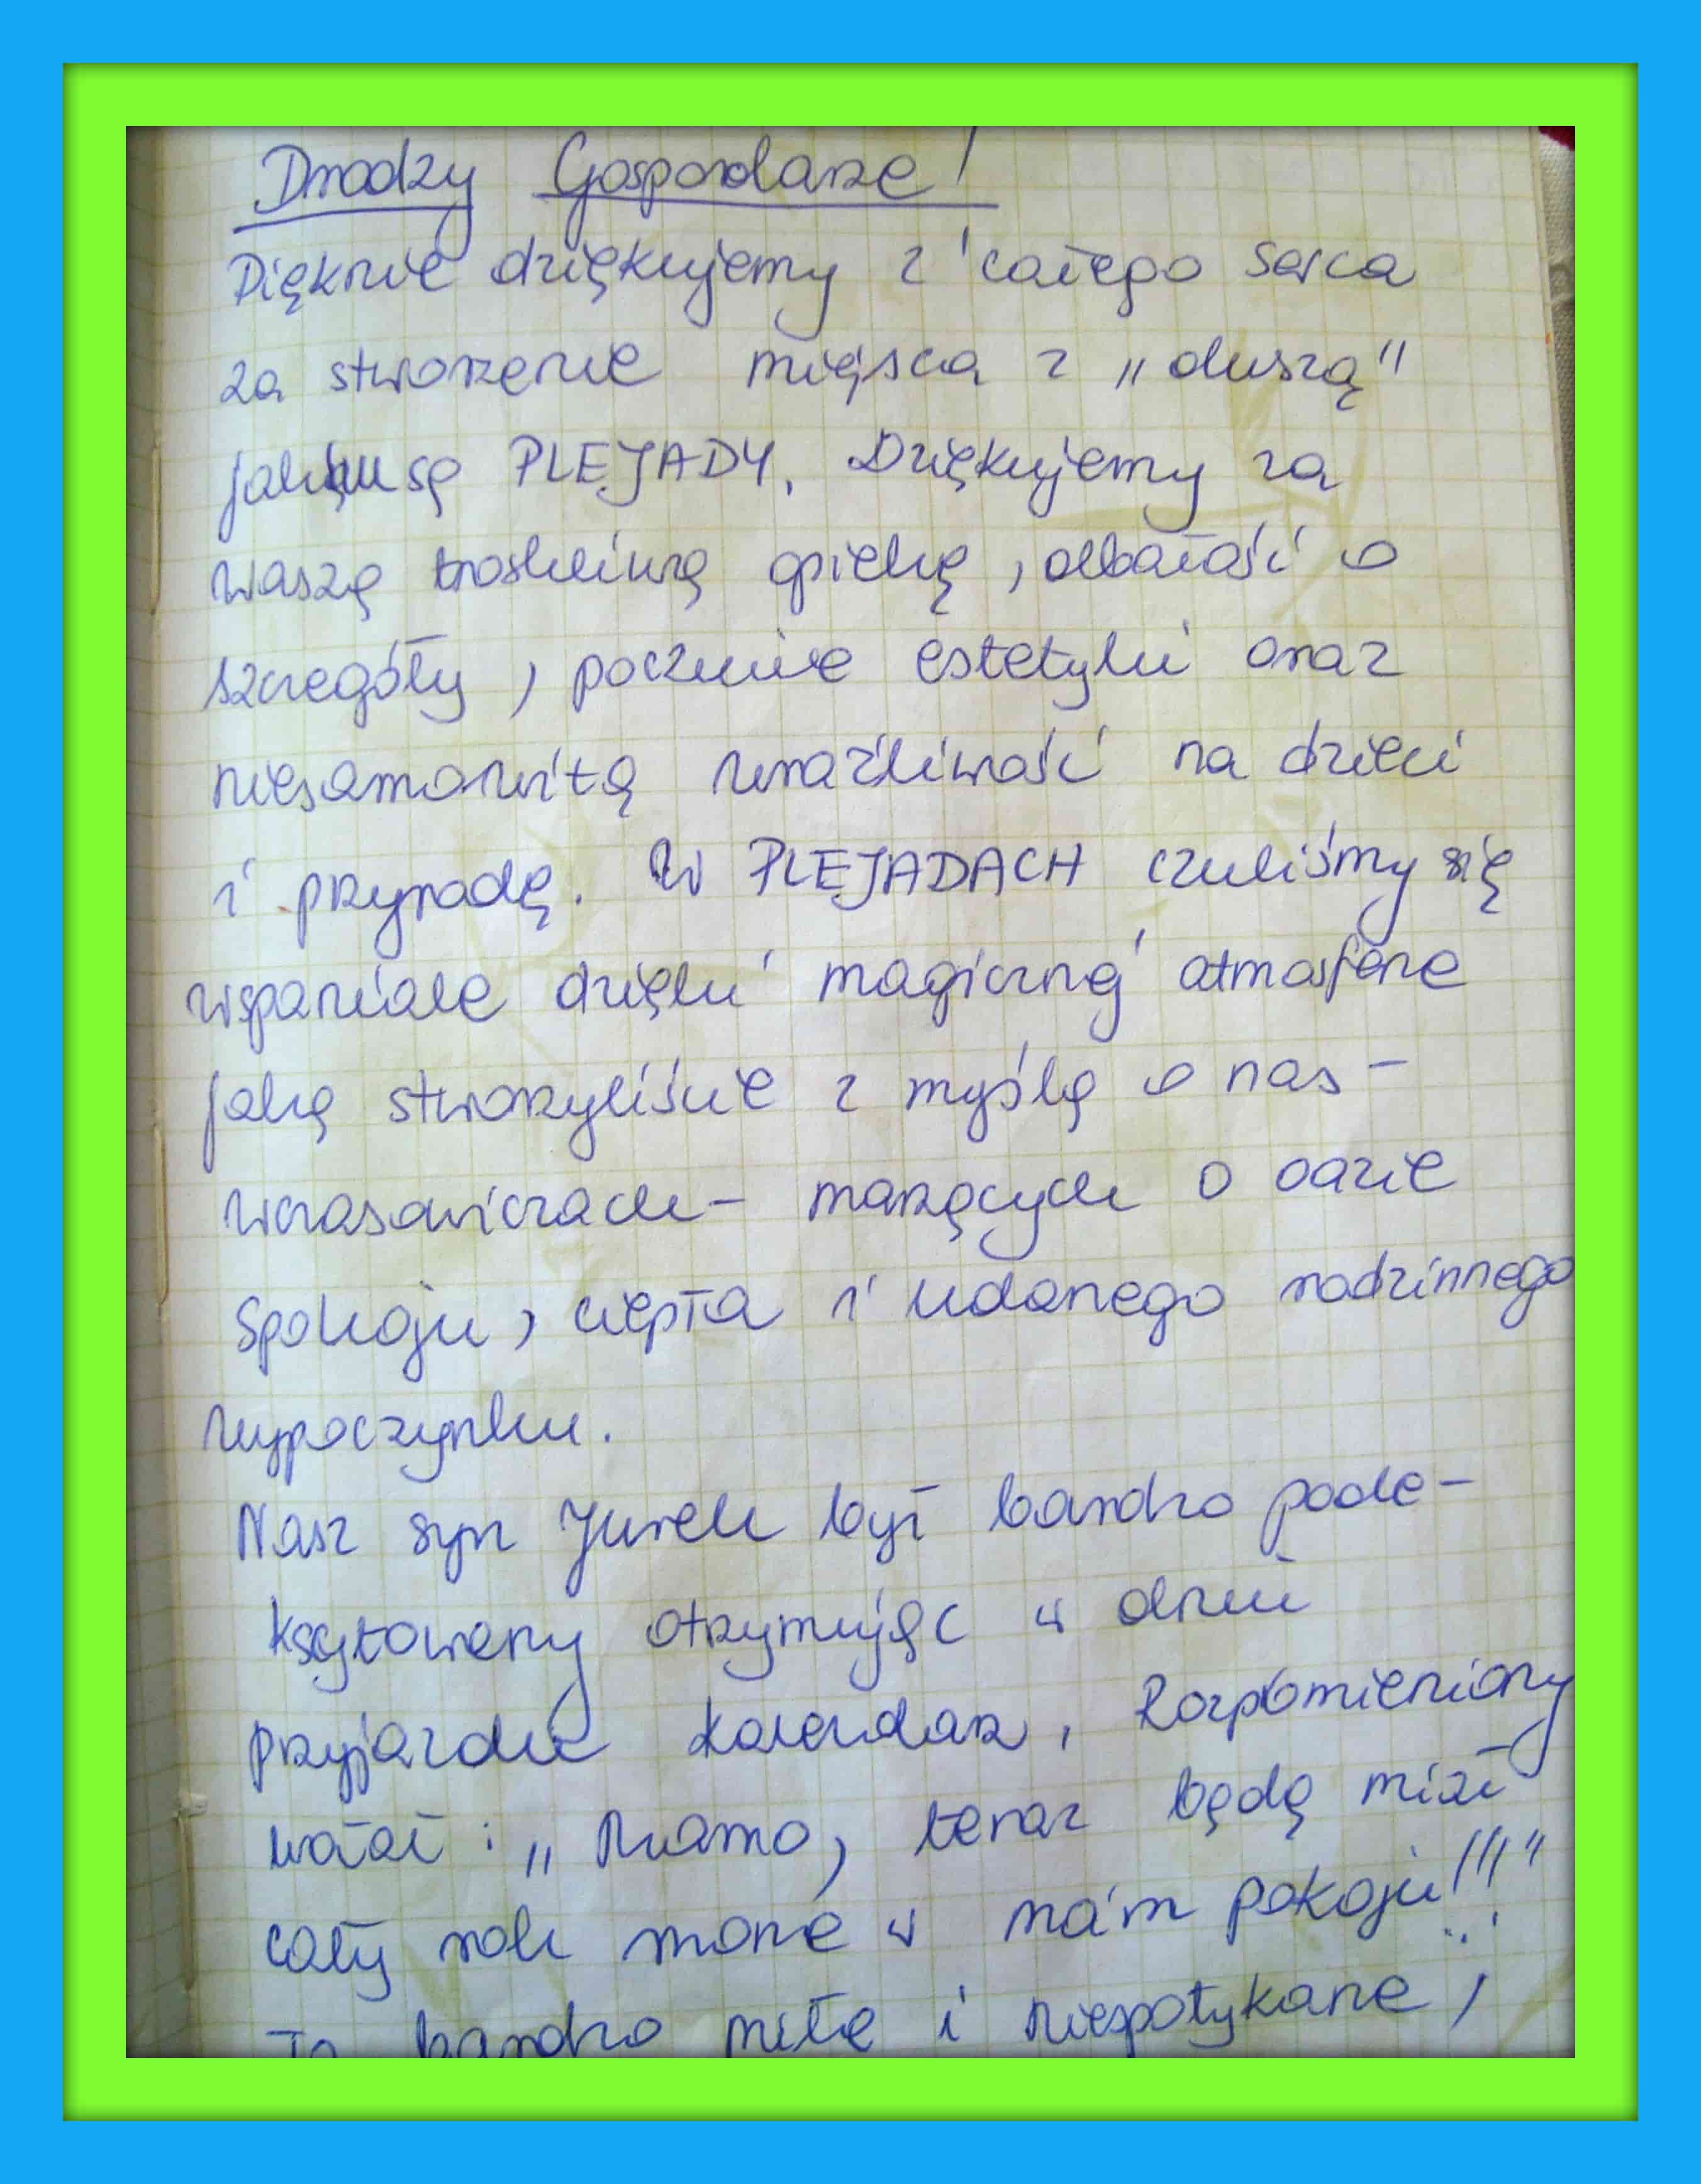 Drodzy Gospodarze!
Pięknie dziękujemy z całego serca
za stworzenie miejsca z „duszą"
jakim są PLEJADY. Dziękujemy za
waszą troskliwą opiekę, dbałość o
szczegóły, poczucie estetyki oraz
niesamowitą wrażliwość na dzieci
i przyrodę. W PLEJADACH czuliśmy się
wspaniale dzięki magicznej atmosferze
jaką stworzyliście z myślą o nas -
wczasowiczach - marzących o oazie
spokoju, ciepła i udanego rodzinnego
wypoczynku.
Nasz syn Jurek był bardzo pode-
kscytowany otrzymując w dniu
przyjazdu kalendarz, Rozpromieniony
wołał: „Mamo, teraz będę miał
cały rok morze w moim pokoju!!!"
To bardzo miłe i niespotykane,